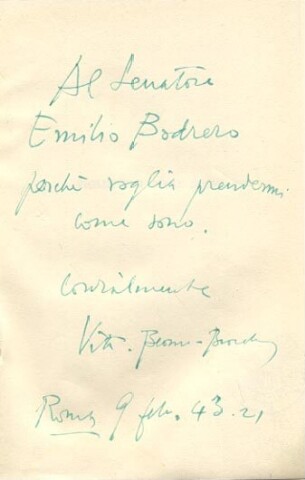 Al Senatore
Emilio Bodrero
perché voglia prendermi
come sono.
Cordialmente
Vitt. Beonio-Brocchieri
Roma 9 feb. 43. 21